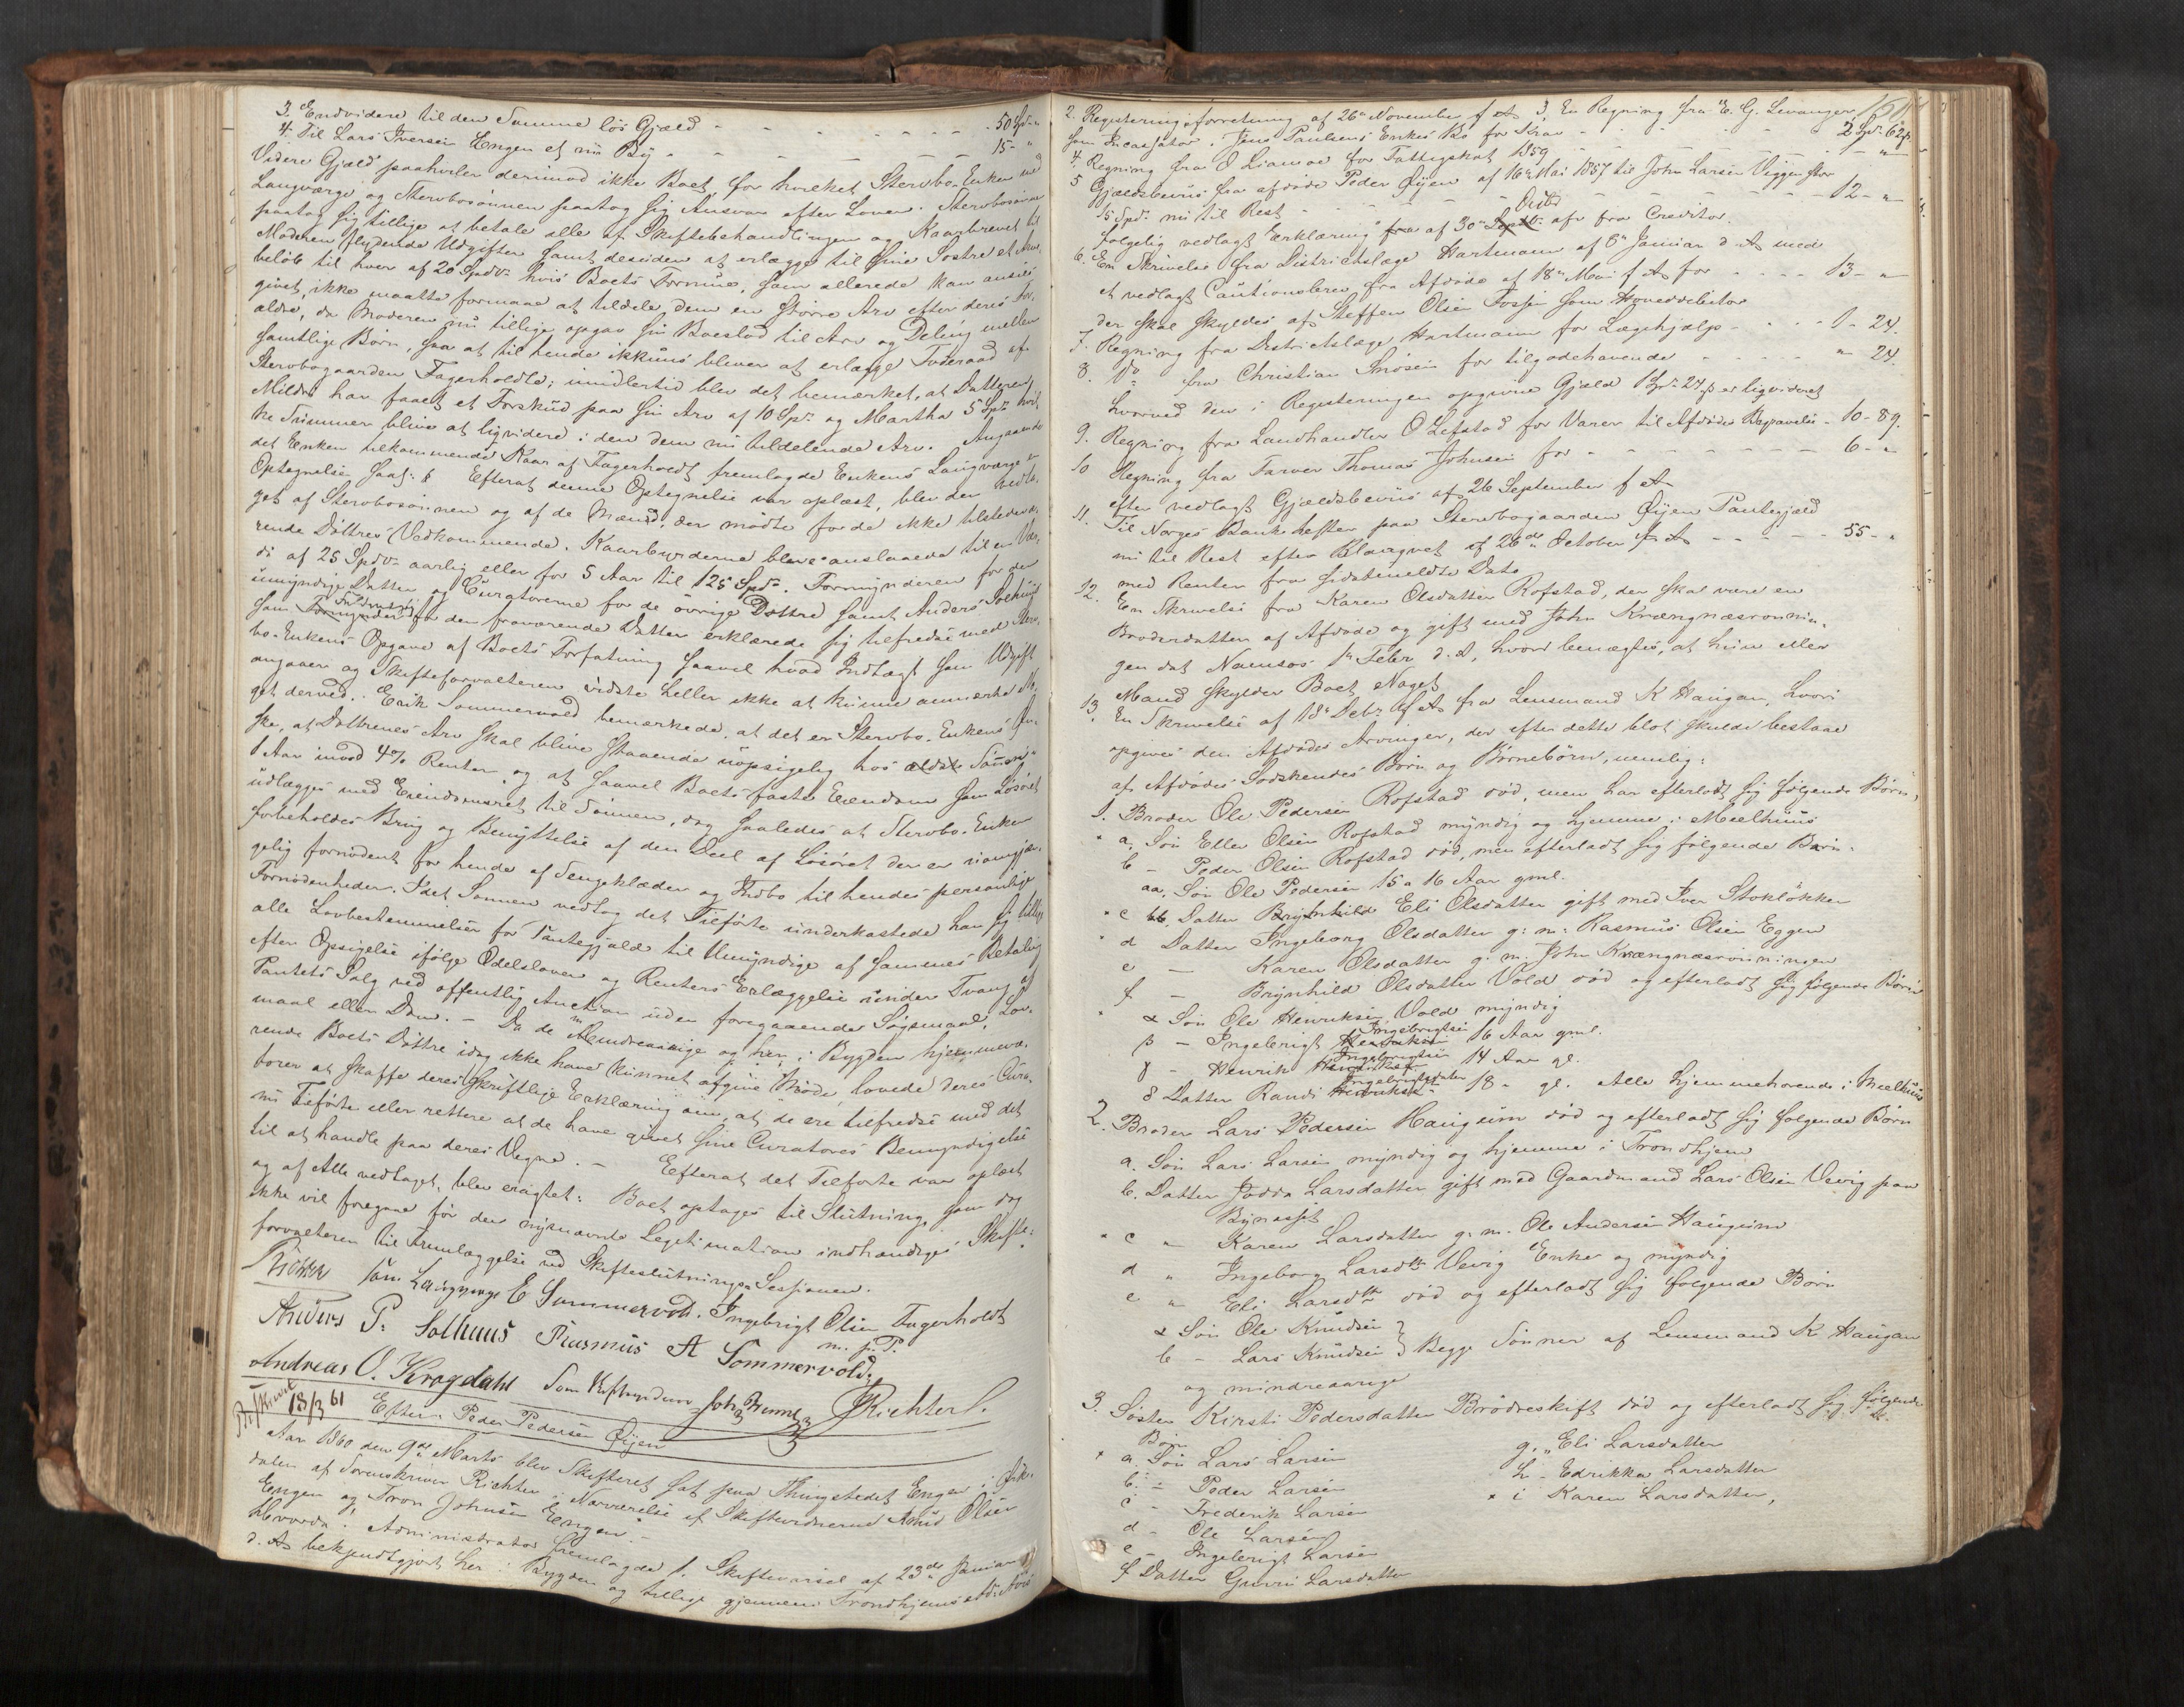 3. Endvidere til den Samme løs Gjæld - - - - - - - 50 Spd "
4. Til Lars Iversen Engen et nii Byg - - - - - - 15 - "
Videre Gjæld paahviler derimod ikke Boet, for hvilket Stervbo-Enken med
Laugværge og Stervbosønnen paatog sig Ansvar efter Loven. Stervbosønnen
paatog sig tillige at betale alle af Skiftebehandlingen og Kaarbrevet til
Moderen flydende Udgifter samt desuden at erlægge til sine Søstre et
beløb til hver af 20 Spdr hvis Boets Formue, som allerede kan ansees
givet, ikke maatte formaae at tildele dem en større Arv efter deres For-
ældre, da Moderen nu tillige opgav sin Boeslod til Arv og Deling mellem
samtlige Børn, saa at til hende ikkuns bliver at erlægge Føderaad af
Stervbogaarden Fagerholdt; imidlertid blev det bemærket, at Datteren
Mildri har faaet et Forskud paa sin Arv af 10 Spd og Martha 5 Spd hvil-
ke Summer blive at ligvidere i den dem nu tildelende Arv. Angaaende
det Enken tilkommende Kaar af Fagerholdt fremlagde Enkens Laugværge en
Optegnelse saal: Efterat denne Optegnelse var oplæst, blev den vedta-
get af Stervbosønnen og af de Mænd, der mødte for de ikke tilstedevæ-
rende Døttres Vedkommende. Kaarbyrderne bleve anslaaede til en Vær-
di af 25 Spdr aarlig eller for 5 Aar til 125 Spdr. Formynderen for den
umyndige Datter og Curatorerne for de øvrige Døttre samt Anders Solhuus
som Formynder for den fraværende Datter erklærede sig tilfredse med Sterv-
bo-Enkens Opgave af Boets Forfatning saavel hvad Indtægt som Udgift
angaaer og Skifteforvalteren vidste heller ikke at kunne anmærke No-
get derved. Erik Sommervold bemærkede, at det er Stervbo-Enkens Øn-
ske, at Døttrenes Arv skal blive staaende uopsigelig hos ældste Sønnen i
1 Aar imod 4% Renter og at saavel Boets faste Eiendom som Løsøret
udlægges med Eiendomsret til Sønnen, dog saaledes at Stervbo-Enken
forbeholdes Brug og Benyttelse af den Deel af Løsøret der er uomgjæn-
gelig fornødent for hende af Sengeklæder og Indbo til hendes personlige
Fornødenheder. Idet Sønnen vedtog det Tilførte underkastede han sig tillige
alle Lovbestemmelser for Pantegjæld til Umyndige af sammes Betaling
efter Opsigelse ifølge Odelsloven og Renters Erlæggelse under Tvang af
Pantets Salg ved offentlig Auction uden foregaaende Søgsmaal, Lov-
maal eller Dom. - Da de Mindreaarige og her i Bygden hjemmevæ-
rende Boets Døttre idag ikke have kunnet afgive Møde, lovede deres Cura-
torer at skaffe deres skriftlige Erklæring om, at de ere tilfredse med det
nu Tilførte eller rettere at de have givet sine Curatores Bemyndigelse
til at handle paa deres Vegne. - Efterat det Tilførte var oplæst
og af Alle vedtaget, blev eragtet: Boet optages til Slutning, som dog
ikke vil foregaae før den nysnævnte Legitimation indhændiges Skifte-
forvalteren til Fremlæggelse ved Skifteslutnings-Sessionen.
Richter som Laugværge E Sommervold. Ingebrigt Olsen Fagerholdt
m. p. P.
Anders P. Solhuus Rasmus A Sommervold
Andreas O. Krogdahl Som Richter S.
13/3 61 Efter Peder Pedersen Øyen
Aar 1860 den 9de Marts blev Skifteret sat paa Thingstedet Engen i Ørk-
dalen af Sorenskriver Richter i Nærværelse af Skiftevidnerne Arnt Olsen
Engen og Tron Johnsen Engen. -
Hvorda: Administrator fremlagde 1. Skiftevarsel af 23de Januar
d. A. bekjendtgjort her i Bygden og tillige gjennem Trondhjems Adr: Avis
2. Registeringsforretning af 26 November f A 3, En Regning fra E. G. Levanger
som Incassator. Jens Paulsens Enkes Bo for Kram - - - - 2 Spd 62 ß
4. Regning fra O Liamoe for Fattigskat 1859 - - - - "
5 Gjældsbeviis fra afdøde Peder Øyen af 16 Mai 1857 til John Larsen Viggen stor
15 Spdr nu til Rest - - - - - - - 12 - "
Octbr
følgelig vedlagt Erklæring fra af 30 Septbr afv fra Creditor.
6. En Skrivelse fra Districtslæge Hartmann af 6 Januar d A med
et vedlagt Cautionsbrev fra Afdøde af 18 Mai f A for - - - - 13 - "
der skal skyldes af Steffen Olsen Fossen som Hoveddebitor
7. Regning fra Districtslæge Hartmann for Lægehjælp - - - - 1 - 24.
8. Do fra Christian Snøsen for tilgodehavende - - - - - " 24.
hvorved den i Registeringen opgivne Gjæld 1 Spd 24 ß er ligvideret
9. Regning fra Landhandler O Lefstad for Varer til Afdødes Begravelse - 10 - 89.
10 Regning fra Farver Thomas Johnsen for - - - - - - 6 - "
efter vedlagt Gjældsbeviis af 26 September f A
11. Til Norges Bank hefter paa Stervbogaarden Øyen Pantegjæld
nu til Rest efter af 26de October f A - - - - - 55 - "
med Renter fra sidstmeldte Dato
12. En Skrivelse fra Karen Olsdatter Rofstad, der skal være en
Broderdatter af Afdøde og gift med John Kvængnæsrønnin-
gen dat Namsos 1 Febr d. A, hvori benægtes, at hun eller
Mand skylder Boet Noget
13. En Skrivelse af 18 Debr f A fra Lensmand K Haugan, hvori
opgives den Afdødes Arvinger, der efter dette blot skulde bestaae
af Afdødes Sødskendes Børn og Børnebørn, nemlig:
1. Broder Ole Pedersen Rofstad død, men har efterladt sig følgende Børn,
a. Søn Eller Olsen Rofstad myndig og hjemme i Meelhuus
b - Peder Olsen Rofstad død, men efterladt sig følgende Børn:
aa. Søn Ole Pedersen 15 a 16 Aar gml.
c bb. Datter Brynhild Eli Olsdatter gift med Iver Stokløkken
d Datter Ingeborg Olsdatter g: m: Rasmus Olsen Eggen
e - Karen Olsdatter g. m. John Kvængnæsrønningen
f - Brynhild Olsdatter Vold død og efterladt sig følgende Børn
α Søn Ole Henriksen Vold myndig
Ingebrigtsen
β - Ingebrigt Henriksen 16 Aar gml.
Ingebrigtsen
γ - Henrik Henriksen 14 Aar gl.
Ingebrigtsdatter
δ Datter Randi Henriksd 18 - gl. Alle hjemmehørende i Meelhuus
2. Broder Lars Pedersen Haugum død og efterladt sig følgende Børn
a. Søn Lars Larsen myndig og hjemme i Trondhjem
b. Datter Jødda Larsdatter gift med Gaardmand Lars Olsen Vevig paa
Bynæsset
c " Karen Larsdatter g. m. Ole Andersen Haugum
d " Ingeborg Larsdtr Vevig Enke og myndig
e " Eli Larsdtr død og efterladt sig følgende Børn
α Søn Ole Knudsen
b - Lars Knudsen } Begge Sønner af Lensmand K Haugan
og mindreaarige
3. Søster Kirsti Pedersdatter Brødreskift død og efterladt sig følgende
Børn
a. Søn Lars Larsen
b. - Peder Larsen
c - Frederik Larsen
d - Ole Larsen
e - Ingebrigt Larsen
f Datter Guru Larsdatter
g. " Eli Larsdatter
h - Edrikka Larsdatter
i Karen Larsdatter,